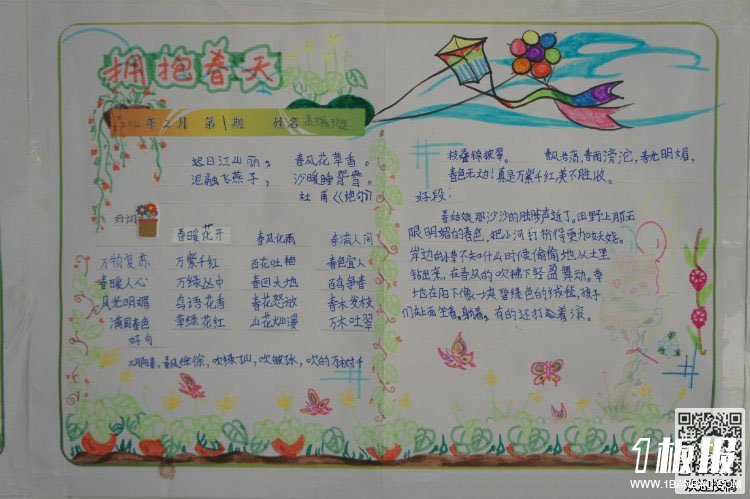 拥抱春天
年二月 第1期 姓名 孟瑞璇
迟日江山丽, 春风花草香。
泥融飞燕子, 沙暖睡鸳鸯。
杜甫《绝句》
好词
春暖花开 春风化雨 春满人间
万物复苏 万紫千红 百花吐艳 春色宜人
春暖人心 万绿丛中 春回大地 百鸟争春
风光明媚 鸟语花香 春花怒放 春木发枝
满园春色 草绿花红 山花烂漫 万木吐翠
好句
春风徐徐,吹绿了山,吹皱了水,吹的万树千
枝叠锦披翠。 春风浩荡,春雨滂沱,春光明媚,
春色无边!真是万紫千红,美不胜收。
好段:
春姑娘那沙沙的脚步声近了。田野上那无
限明媚的春色,把小河打扮得更加妖娆。
岸边的小草不知什么时候偷偷地从土里
钻出来,在春风的吹拂下轻盈舞动。草
地在阳光下像一块碧绿色的绒毯,孩子
们在上面坐着,躺着,有的还打起着滚。
1板报
WWW.1BANBAO.COM